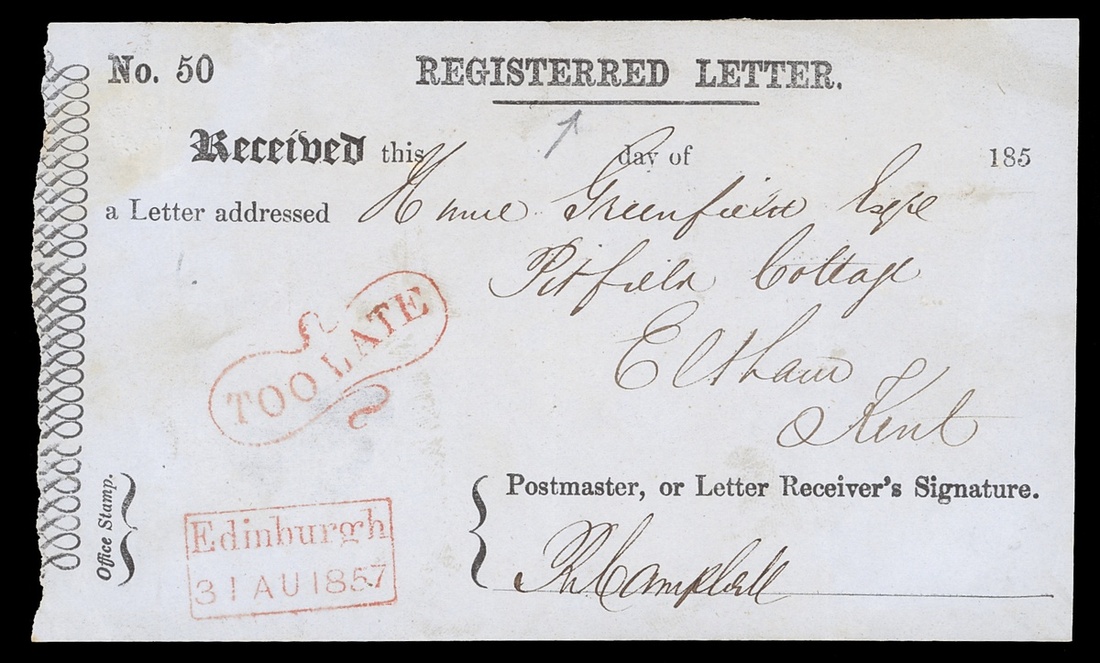 No. 50
REGISTERRED LETTER.
Received this day of 185
a Letter addressed Hume Greenfield Esqre
Pitfield Cottage
Eltham
Kent
TOO LATE
Postmaster, or Letter Receiver's Signature.
Office Stamp.
Edinburgh
31 AU 1857
Campbell